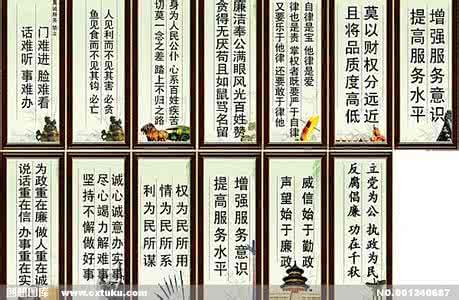 增强服务意识
提高服务水平
莫以财权分远近
且将品质度高低
自律是宝 他律是爱
律也是责 掌权者既要严于自律
又要乐于他律 还要敢于律他
廉洁奉公满眼风光百姓赞
贪得无厌苟且如鼠骂名留
身为人民公仆 心系百姓疾苦
切莫一念之差 踏上不归之路
人见利而不见其害 必贪
鱼见食而不见其钩 必亡
门难进 脸难看
话难听 事难办
立党为公 执政为民
反腐倡廉 功在千秋
威信始于勤政
声望始于廉政
增强服务意识
提高服务水平
权为民所用
情为民所系
利为民所谋
诚心诚意办实事
尽心竭力解难事
坚持不懈做好事
为政重在廉 做人重在诚
说话重在信 办事重在实
www.oxtuku.com
NO.801240687